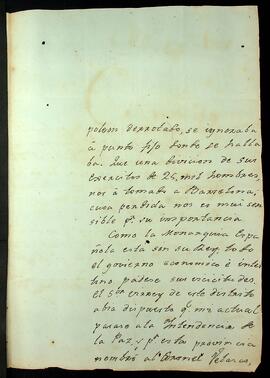 poleon derrotado, se ignoraba
á punto fijo donde se halla
ba. Que una divicion de sus
exercitos de 25, mil hombres,
nos á tomado a Barcelona;
cuya perdida nos es mui sen
sible pr. su importancia
Como la Monarquia Espa
ñola está sin su Rey, todo
el govierno economico é inter
ino, padese sus vicicitudes.
El Sor. virrey de este distrito
abia dispuesto qe. mi actual
pasase a la Intendencia de
la Paz, y pa. esta provincia
nombró al Coronel